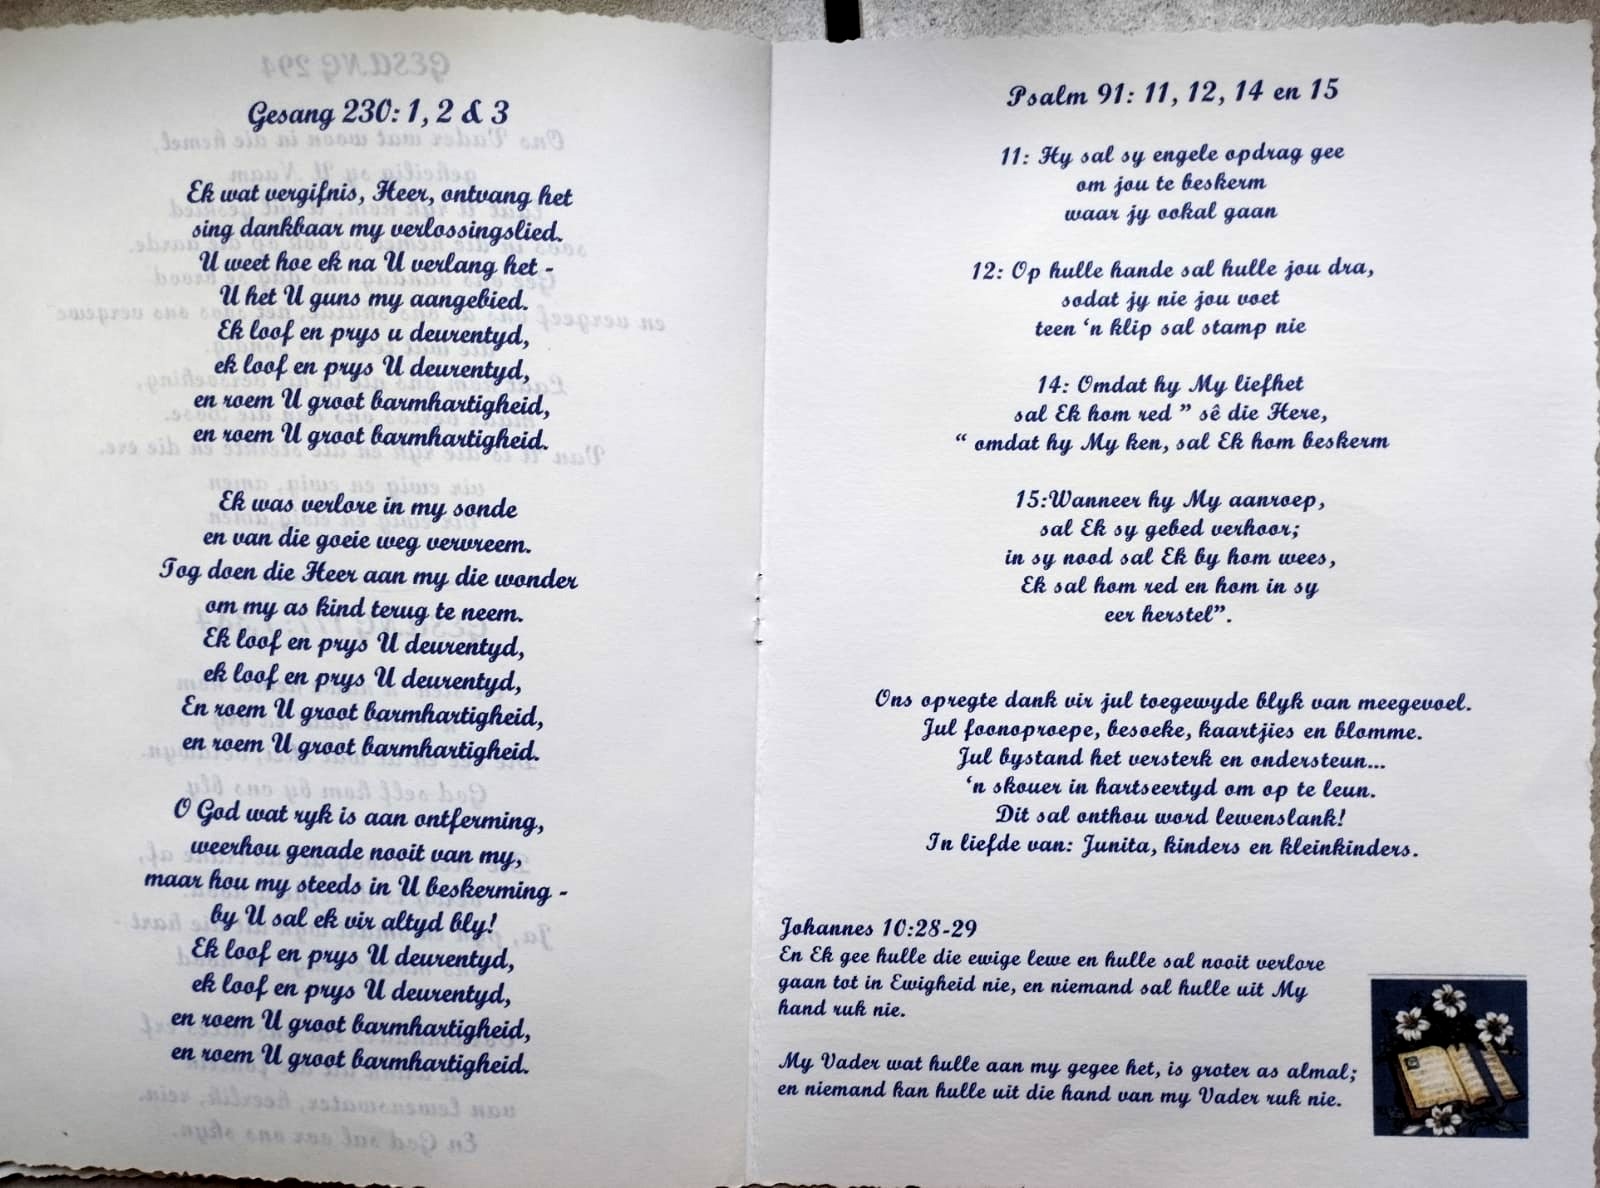 Gesang 230: 1, 2 & 3
Ek wat vergifnis, Heer, ontvang het
sing dankbaar my verlossingslied.
U weet hoe ek na U verlang het -
U het U guns my aangebied.
Ek loof en prys u deurentyd,
ek loof en prys U deurentyd,
en roem U groot barmhartigheid,
en roem U groot barmhartigheid.
Ek was verlore in my sonde
en van die goeie weg vervreem.
Tog doen die Heer aan my die wonder
om my as kind terug te neem.
Ek loof en prys U deurentyd,
ek loof en prys U deurentyd,
En roem U groot barmhartigheid,
en roem U groot barmhartigheid.
O God wat ryk is aan ontferming,
weerhou genade nooit van my,
maar hou my steeds in U beskerming -
by U sal ek vir altyd bly!
Ek loof en prys U deurentyd,
ek loof en prys U deurentyd,
en roem U groot barmhartigheid,
en roem U groot barmhartigheid.
Psalm 91: 11, 12, 14 en 15
11: Hy sal sy engele opdrag gee
om jou te beskerm
waar jy ookal gaan
12: Op hulle hande sal hulle jou dra,
sodat jy nie jou voet
teen ‘n klip sal stamp nie
14: Omdat hy My liefhet
sal Ek hom red ” sê die Here,
“ omdat hy My ken, sal Ek hom beskerm
15:Wanneer hy My aanroep,
sal Ek sy gebed verhoor;
in sy nood sal Ek by hom wees,
Ek sal hom red en hom in sy
eer herstel”.
Ons opregte dank vir jul toegewyde blyk van meegevoel.
Jul foonoproepe, besoeke, kaartjies en blomme.
Jul bystand het versterk en ondersteun...
‘n skouer in hartseertyd om op te leun.
Dit sal onthou word lewenslank!
In liefde van: Junita, kinders en kleinkinders.
Johannes 10:28-29
En Ek gee hulle die ewige lewe en hulle sal nooit verlore
gaan tot in Ewigheid nie, en niemand sal hulle uit My
hand ruk nie.
My Vader wat hulle aan my gegee het, is groter as almal;
en niemand kan hulle uit die hand van my Vader ruk nie.